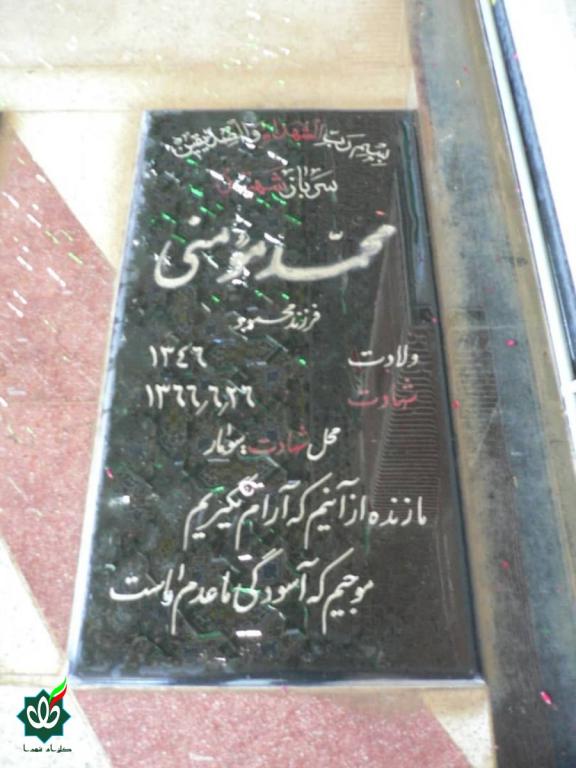 بسم رب الشهداء و الصدیقین
سرباز شهید
محمد مؤمنی
فرزند محمود
ولادت ۱۳٤٦
شهادت ۱۳٦٦٫٦٫۲٦
محل شهادت سومار
ما زنده از آنیم که آرام نگیریم
موجیم که آسودگی ما عدم ماست
گلزار شهدا